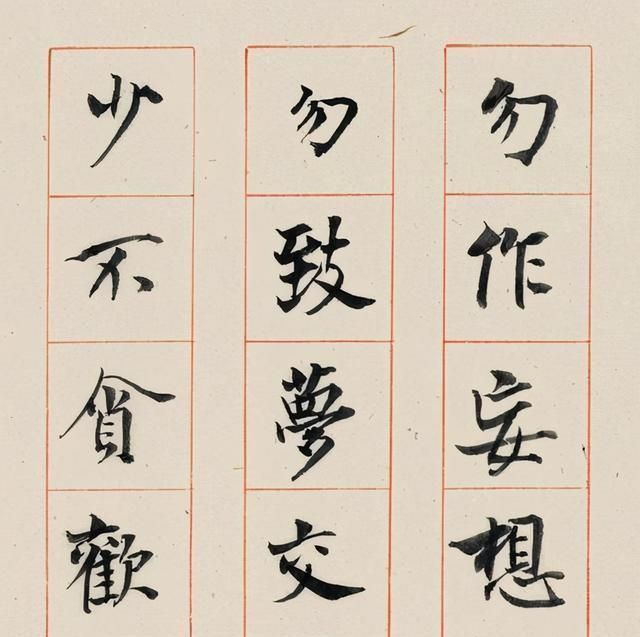 勿作妄想
勿致夢交
少不貪歡